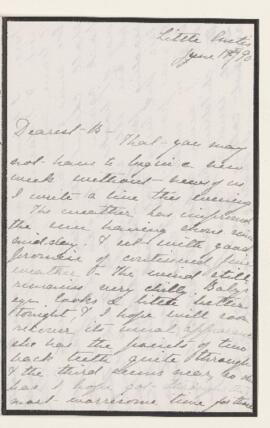 Little Durtis
June 18/90
Dearest B - That you may
not have to begin a new
week without news of us
I write a line this evening
The weather has improved
the sun having shone since
midday & set with good
promise of continued fine
weather tho' the wind still
remains very chilly. Baby's
eye looks a little better
tonight & I hope will soon
recover its usual appearance
she has the points of two
back teeth quite through
& the third seems near, so she
has I hope got through the
most worrisome time for those